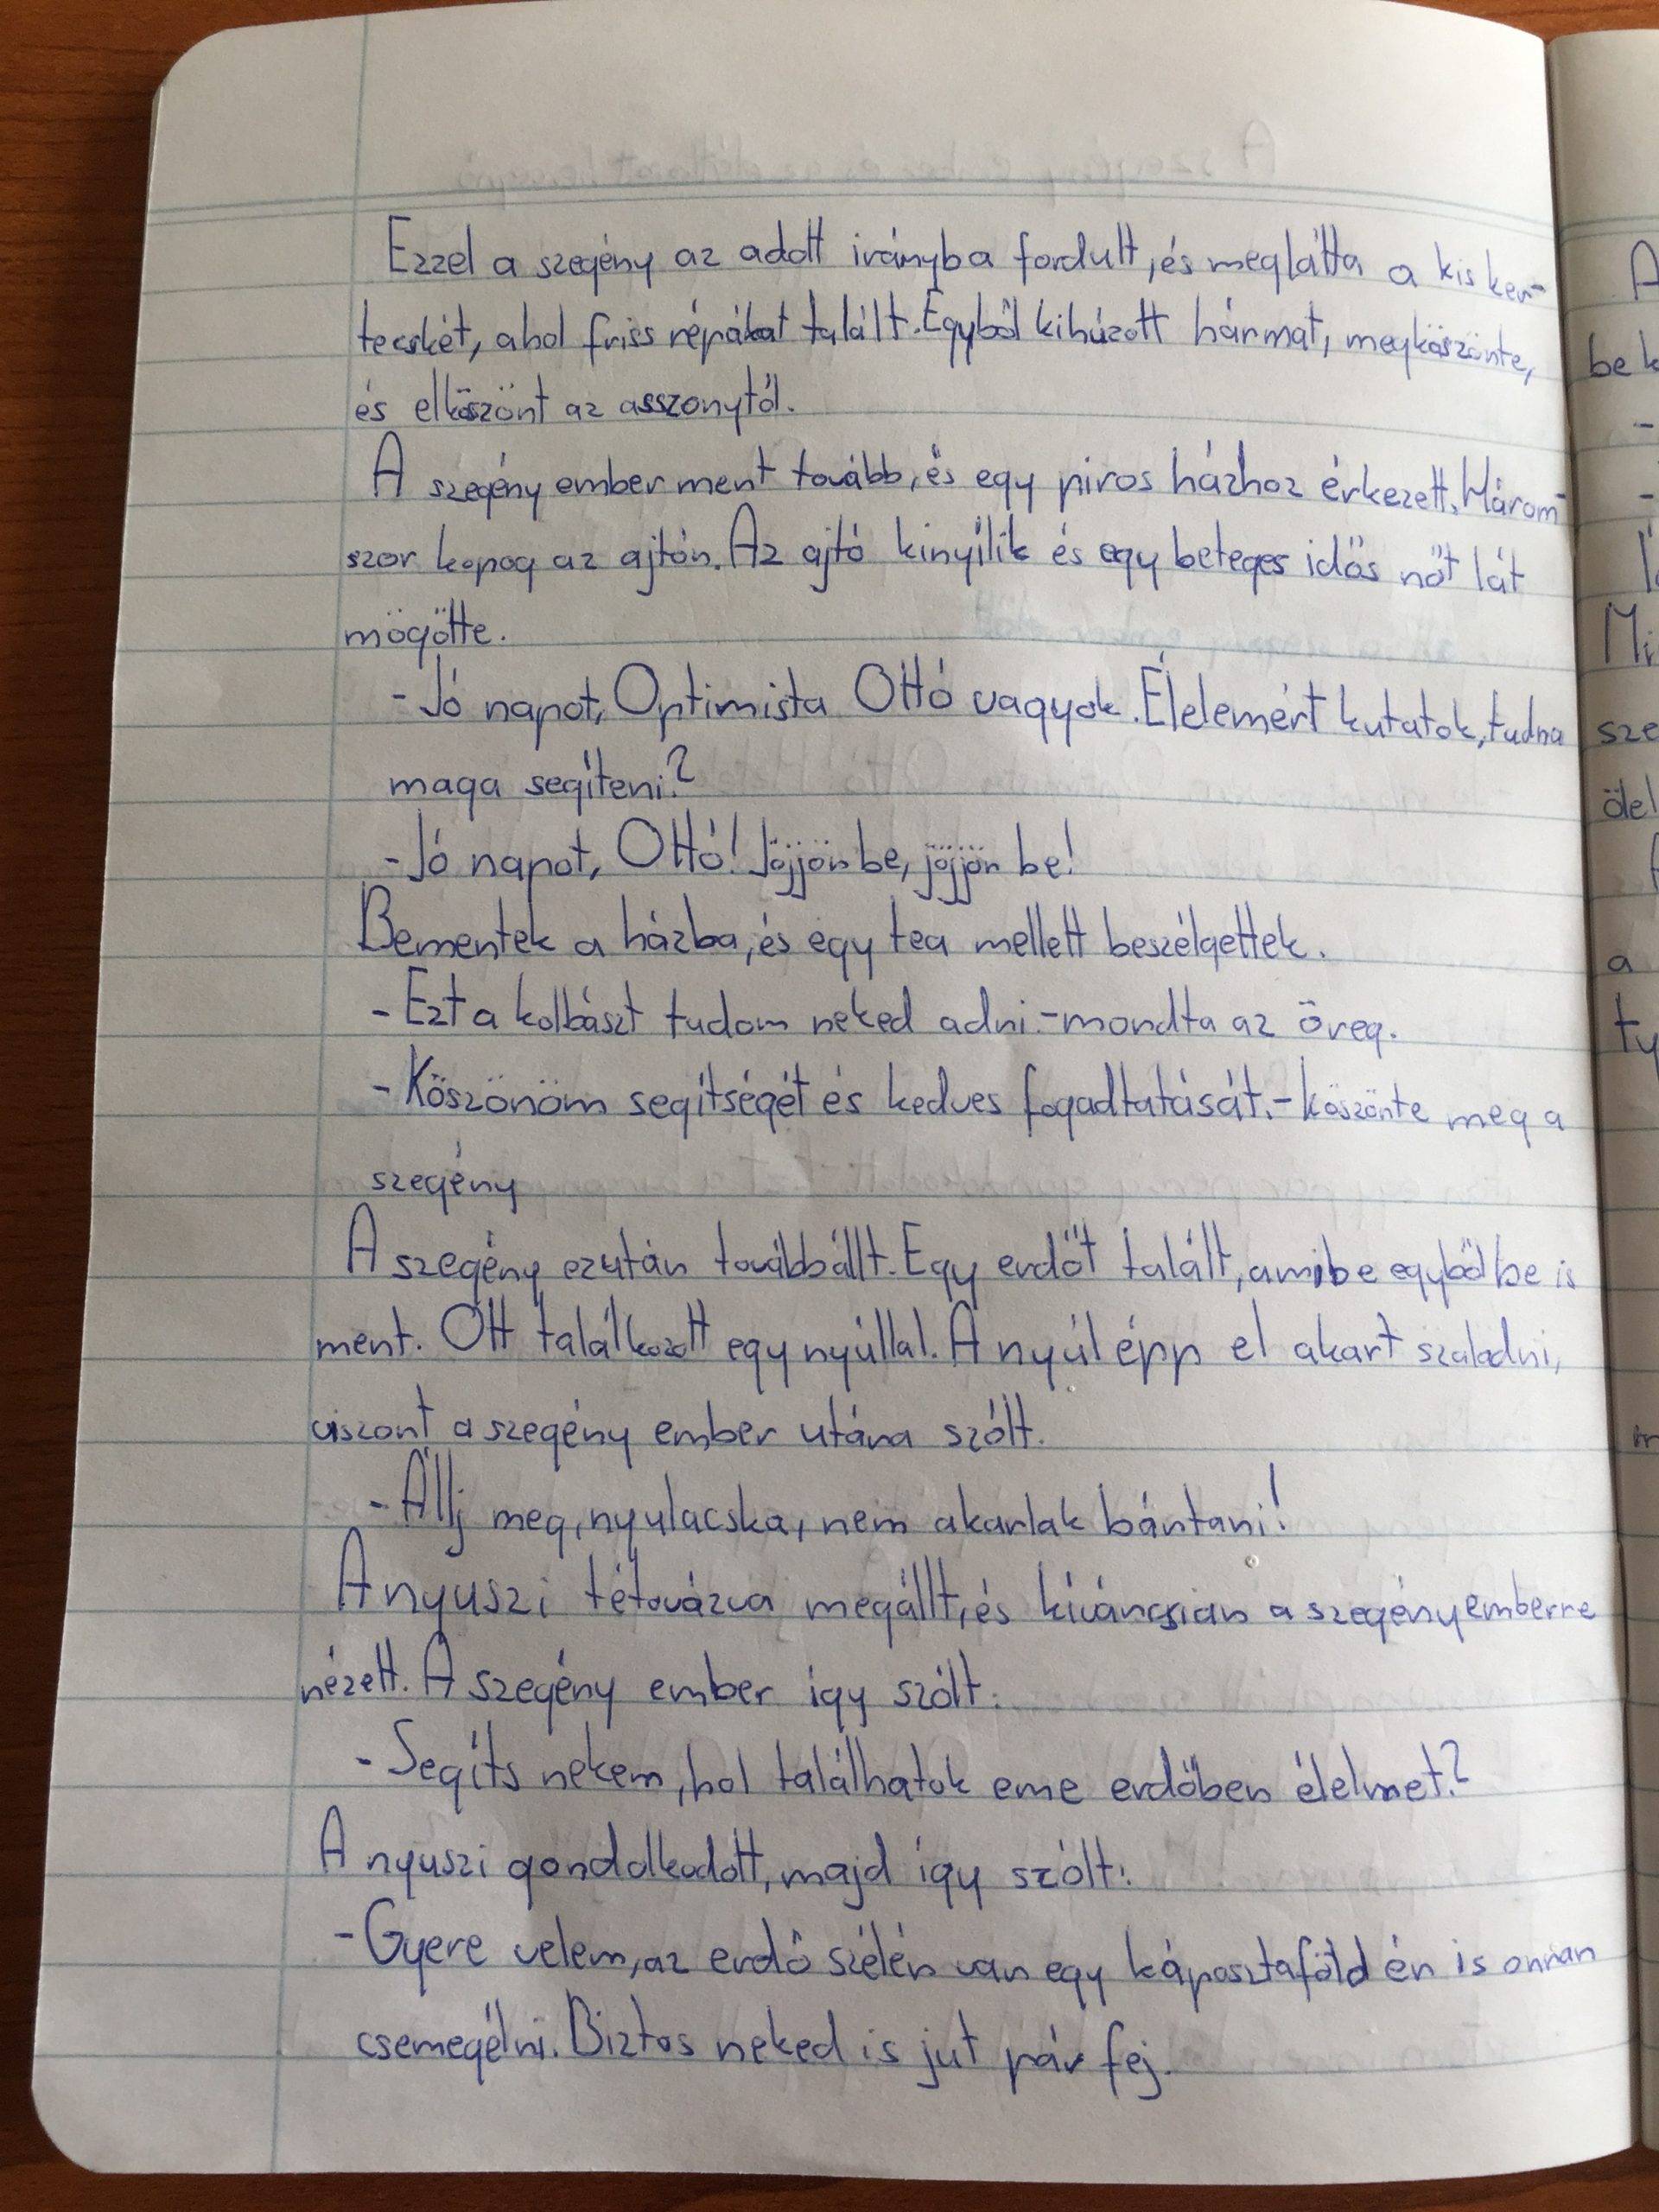 Ezzel a szegény az adott irányba fordult, és meglátta a kis ker-
tecskét, ahol friss répákat talált. Egyből kihúzott hármat, megköszönte,
és elköszönt az asszonytól.
A szegény ember ment tovább, és egy piros házhoz érkezett. Három-
szor kopog az ajtón. Az ajtó kinyílik és egy beteges idős nőt lát
mögötte.
- Jó napot, Optimista Ottó vagyok. Élelemért kutatok, tudna
maga segíteni?
- Jó napot, Ottó! Jöjjön be, jöjjön be!
Bementek a házba, és egy tea mellett beszélgettek.
- Ezt a kolbászt tudom neked adni. - mondta az öreg.
- Köszönöm segítségét és kedves fogadtatását. - köszönte meg a
szegény
A szegény ezután továbbállt. Egy erdőt talált, amibe egyből be is
ment. Ott találkozott egy nyúllal. A nyúl épp el akart szaladni,
viszont a szegény ember utána szólt.
- Állj meg, nyulacska, nem akarlak bántani!
A nyuszi tétovázva megállt, és kíváncsian a szegény emberre
nézett. A szegény ember így szólt:
- Segíts nekem, hol találhatok eme erdőben élelmet?
A nyuszi gondolkodott, majd így szólt:
- Gyere velem, az erdő szélén van egy káposztaföld én is onnan
csemegélni. Biztos neked is jut pár fej.
A
be k
-
-
Mi
sze
ölel
a
ty